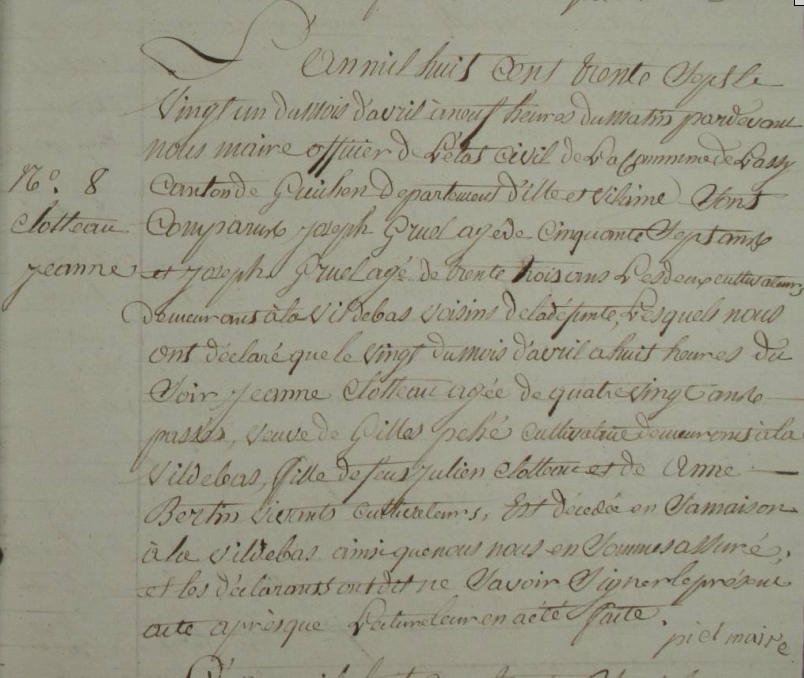 L'an mil huit cent trente sept le
vingt un du mois d'avril à neuf heures du matin par devant
nous maire officier de L'état civil de La Commune de Lassy
N.o 8
Canton de Guichen departement d'ille et vilaine Sont
Clolteau
Comparus joseph Gruel agé de cinquante Sept ans
jeanne
et joseph Gruel agé de trente trois ans Les deux cultivateurs
demeurants à la Vildebas voisins de la défunte, Lesquels nous
ont déclaré que le vingt du mois d'avril a huit heures du
Soir jeanne Clolteau agée de quatre vingt ans
passés, veuve de Gilles peché cultivatrice demeurants à la
vildebas, fille de feus julien Clolteau et de Anne
Bertin vivants cultivateurs, Est décedée en Sa maison
à la vildebas ainsi que nous nous en Sommes assuré,
et les déclarants ont dit ne Savoir Signer le présent
acte après que Lecture leur en a été faite.
piel maire